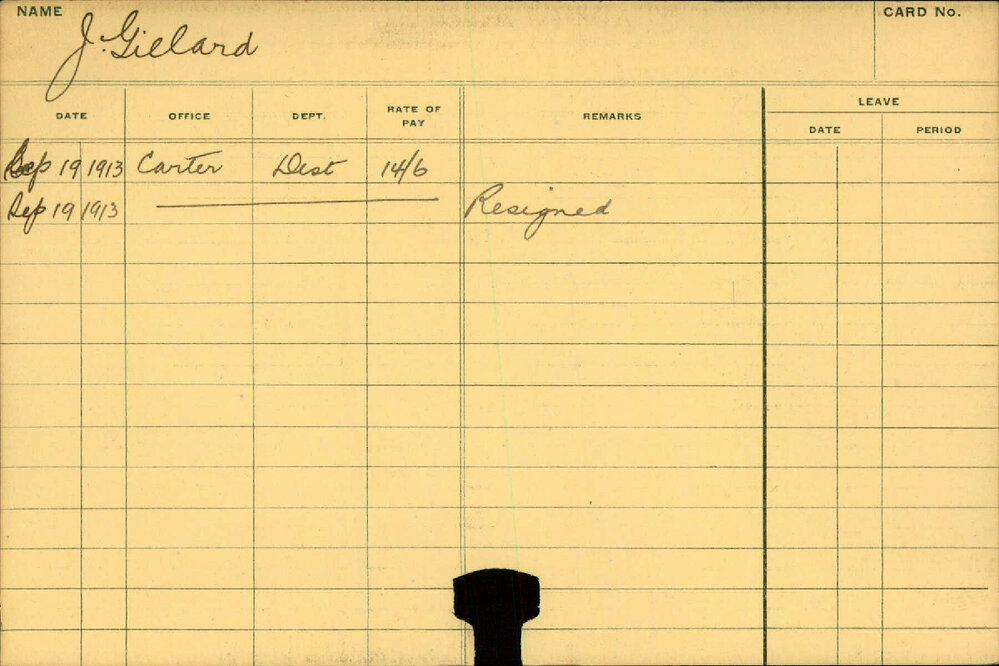 NAME J. Gillard CARD No.
DATE OFFICE DEPT. RATE OF PAY REMARKS LEAVE
DATE PERIOD
Sep 19 1913 Carter Dist 14/6
Sep 19 1913 Resigned